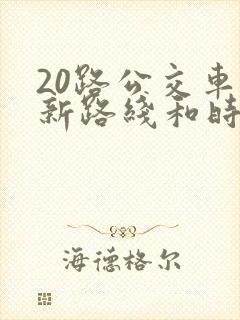 20路公交車
新路綫和時
海德格尔